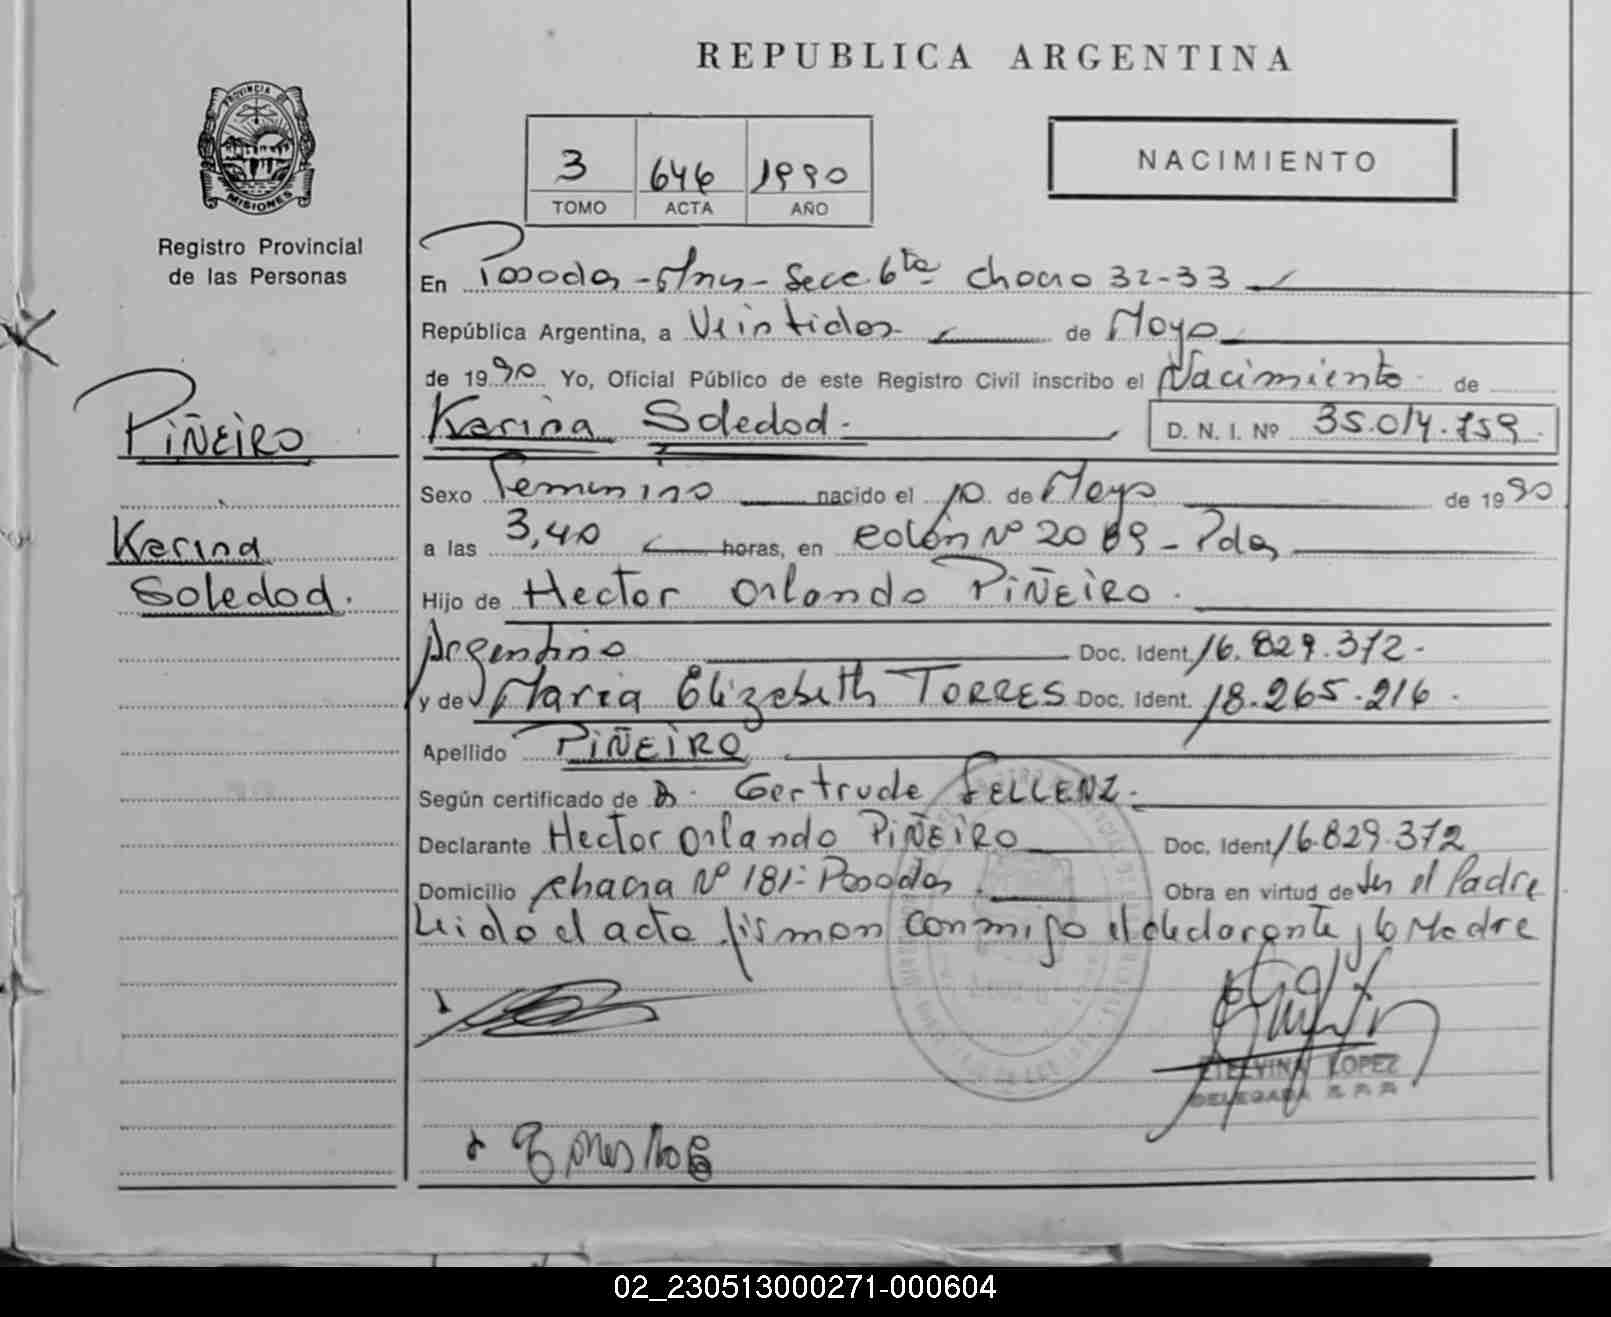 REPUBLICA ARGENTINA
PROVINCIA DE
MISIONES
Registro Provincial
de las Personas
3 646 1990
TOMO ACTA AÑO
NACIMIENTO
En Posadas - Mnes - Secc. 6ta chacra 32-33
República Argentina, a Veintidos de Mayo
de 1990 Yo, Oficial Público de este Registro Civil inscribo el Nacimiento de
Karina Soledad. D. N. I. Nº 35.014.759.
PIÑEIRO
Karina
Soledad.
Sexo Femenino nacido el 10 de Mayo de 1990
a las 3,40 horas, en colón Nº 2089 - Pdas
Hijo de Hector Orlando PIÑEIRO.
Argentino Doc. Ident. 16.829.372.
y de Maria Elizabeth TORRES Doc. Ident. 18.265.216.
Apellido PIÑEIRO
Según certificado de D. Gertrude FELLENZ.
Declarante Hector Orlando PIÑEIRO Doc. Ident 16.829.372
Domicilio chacra Nº 181 - Posadas. Obra en virtud de ser el Padre
Leido el acta firman conmigo el declarante y la Madre
ETELVINA LOPEZ
DELEGADA
02_230513000271-000604